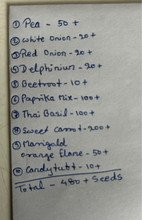 ① Pea - 50 +
② White Onion - 20+
③ Red Onion - 20+
④ Delphinium - 20+
⑤ Beetroot - 10+
⑥ Paprika Mix - 100+
⑦ Thai Basil - 100+
⑧ Sweet Carrot - 200+
⑨ Marigold
orange Flane - 50+
⑩ Candytuft - 10+
Total - 480+ Seeds